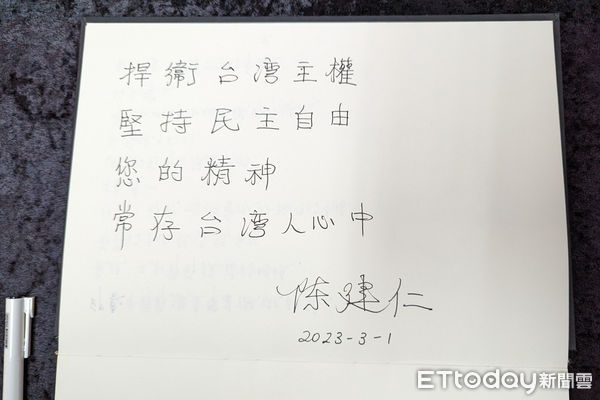 捍衛台湾主權
堅持民主自由
您的精神
常存台湾人心中
陈建仁
2023-3-1
ETtoday新聞雲